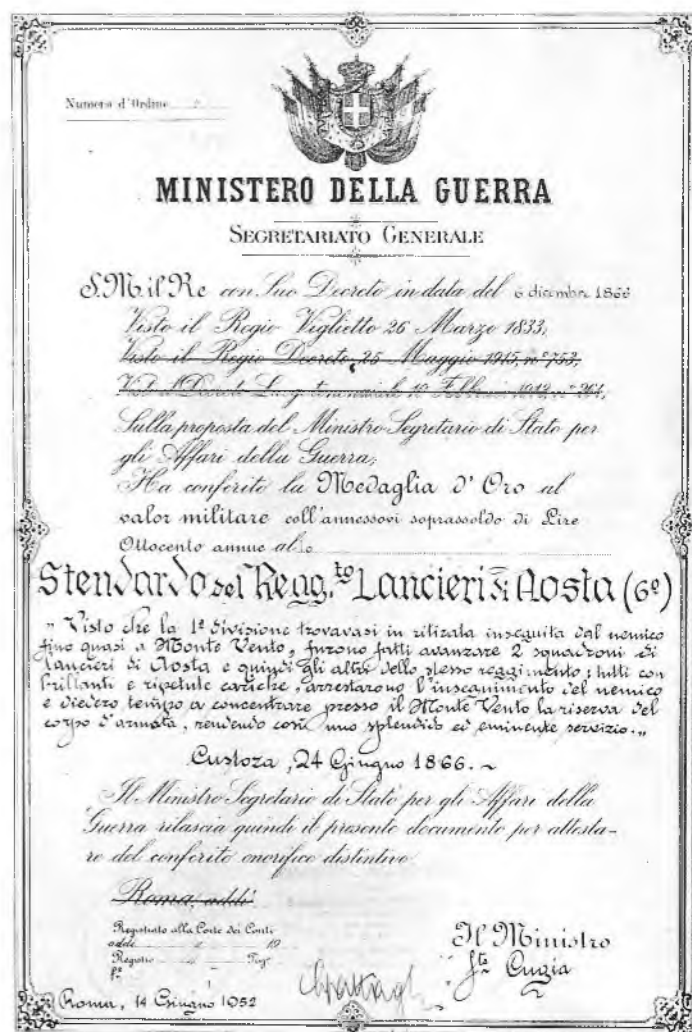 Numero d'Ordine
MINISTERO DELLA GUERRA
SEGRETARIATO GENERALE
S.M. il Re con Suo Decreto in data del 6 dicembre 1866
Visto il Regio Viglietto 26 Marzo 1833;
Visto il Regio Decreto, 25 Maggio 1915, nº 753,
Luogotenenziale nº
Sulla proposta del Ministro Segretario di Stato per
gli Affari della Guerra;
Ha conferito la Medaglia d'Oro al
valor militare coll'annessovi soprassoldo di Lire
Ottocento annue allo
Stendardo del Regg.to Lancieri di Aosta (6º)
„ Visto che la 1ª divisione trovavasi in ritirata inseguita dal nemico
fino quasi a Monte Vento, furono fatti avanzare 2 squadroni di
Lancieri di Aosta e quindi gli altri dello stesso reggimento; tutti con
brillanti e ripetute cariche, arrestarono l'inseguimento del nemico
e diedero tempo a concentrare presso il Monte Vento la riserva del
corpo d'armata, rendendo così uno splendido ed eminente servizio. „
Custoza, 24 Giugno 1866. ~
Il Ministro Segretario di Stato per gli Affari della
Guerra rilascia quindi il presente documento per attesta-
re del conferito onorifico distintivo
Roma, addì
Registrato alla Corte dei Conti
addì 19
Registro Fog.
Il Ministro
fto Cugia
Roma, 14 Giugno 1952